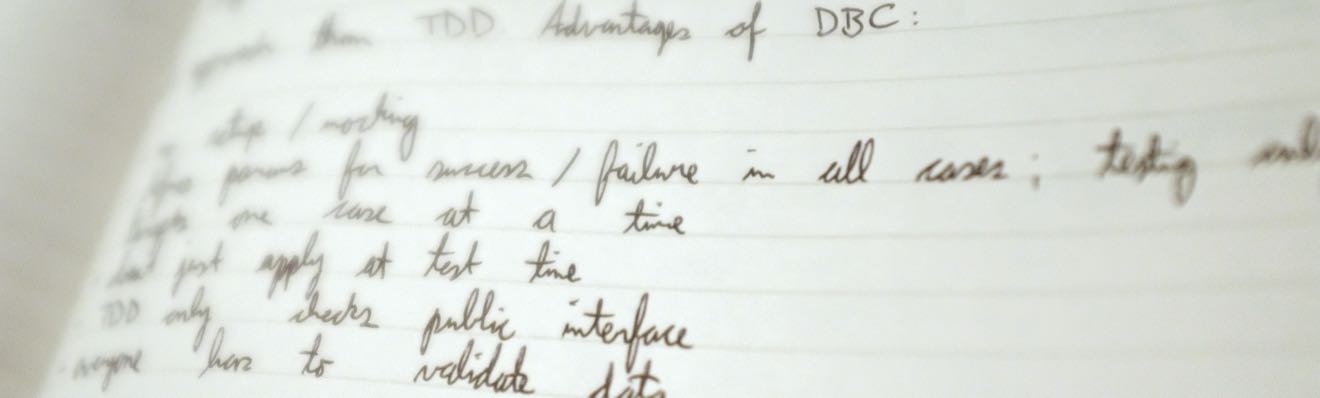 than TDD Advantages of DBC:
/ mocking
params for success / failure in all cases; testing only
one case at a time
just apply at test time
TDD only checks public interface
- everyone has to validate data